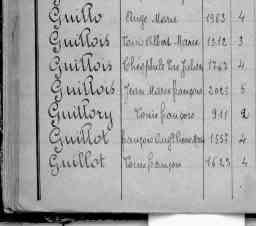 Guillo Ange Marie 1963 4
Guillois Louis Albert Marie 1312 3
Guillois Théophile 1743 4
Guillois Jean Marie François 2023 5
Guillory Louis François 911 2
Guillot François 1557 4
Guillot Louis François 1623 4